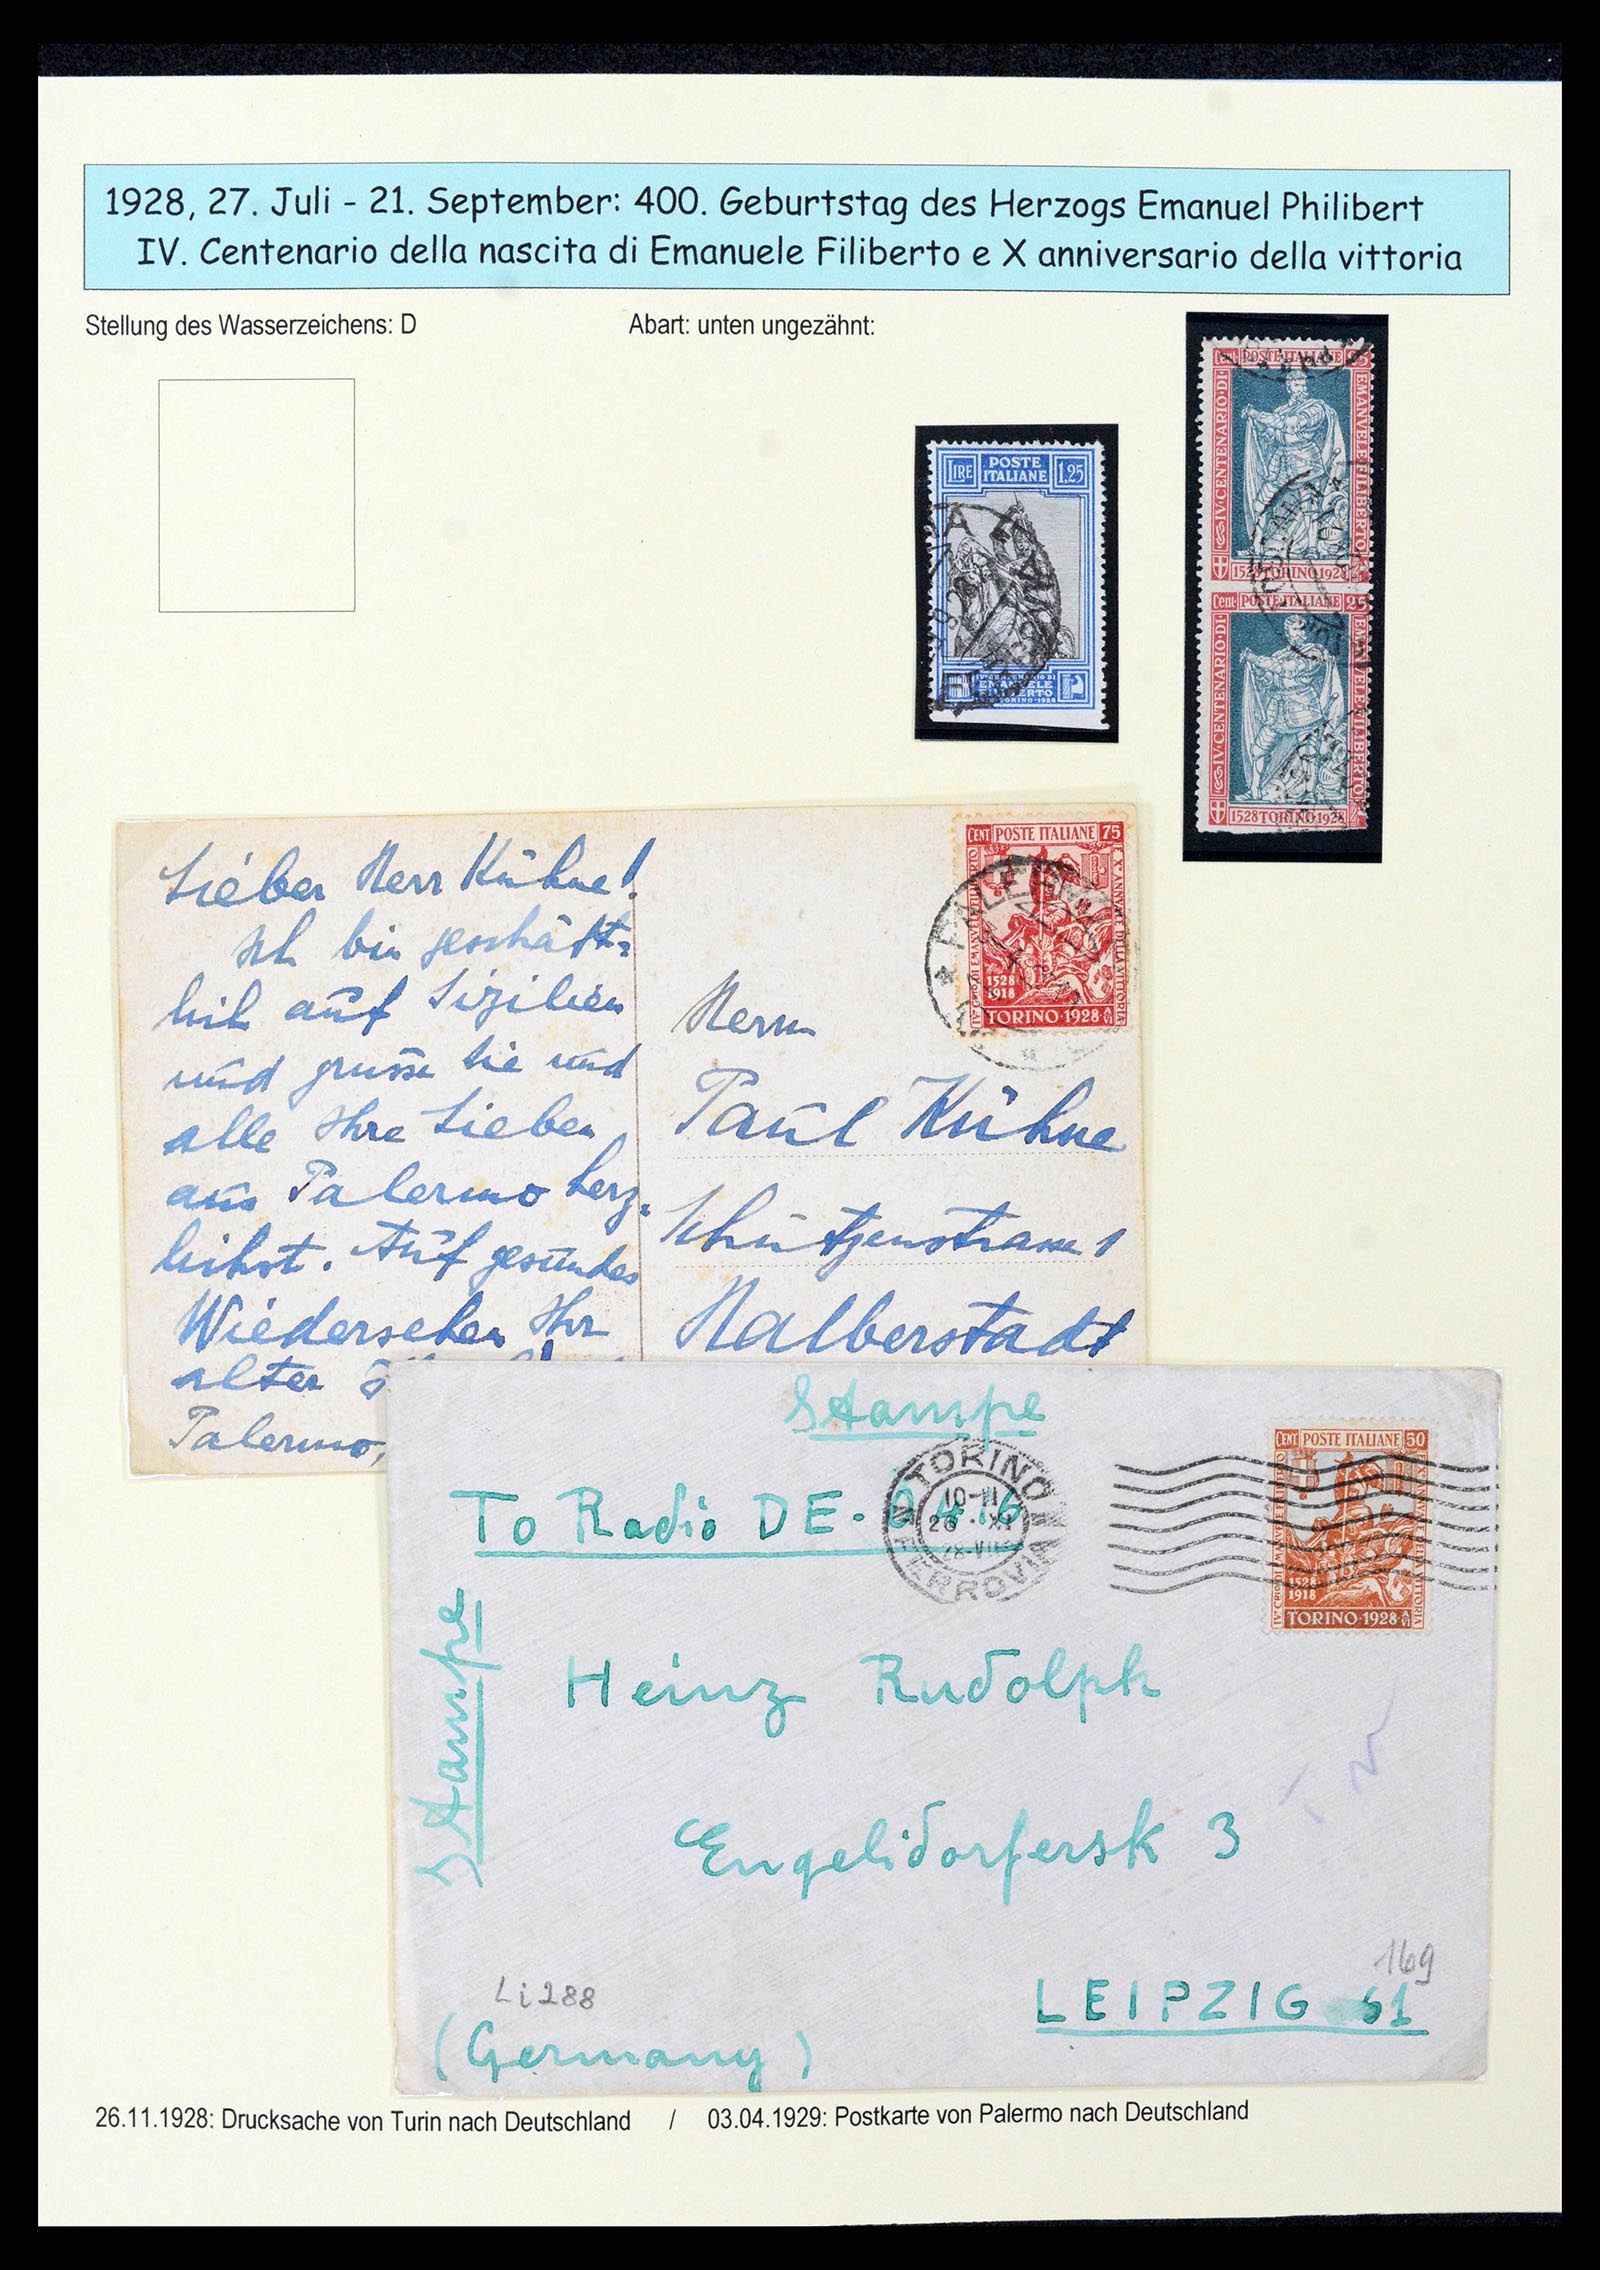 1928, 27. Juli - 21. September: 400. Geburtstag des Herzogs Emanuel Philibert
IV. Centenario della nascita di Emanuele Filiberto e X anniversario della vittoria
Stellung des Wasserzeichens: D
Abart: unten ungezähnt:
LIRE POSTE ITALIANE 1,25
IV° CENTENARIO DI
EMANUELE
FILIBERTO
TORINO·1928
POSTE·ITALIANE 25
IV·CENTENARIO·DI·
EMANVELE·FILIBERTO
1528 TORINO·1928
Cent· POSTE·ITALIANE 25
IV·CENTENARIO·DI·
EMANVELE·FILIBERTO
1528 TORINO·1928
Lieber Herr Kühne!
Ich bin geschäft-
lich auf Sizilien
und grüsse Sie und
alle Ihre Lieben
aus Palermo herz-
lichst. Auf gesundes
Wiedersehen Ihr
alter
Palermo,
CENT POSTE ITALIANE 75
1528
1918
TORINO·1928·A VI
PALERMO
Herrn
Paul Kühne
Schützenstrasse 1
Halberstadt
Stampe
CENT POSTE ITALIANE 50
1528
1918
TORINO·1928·A VI
TORINO
10-11
26 XI
28-VII
FERROVIA
To Radio DE-0416
Stampe
Heinz Rudolph
Engelsdorferstr 3
169
Li 288
LEIPZIG 61
(Germany)
26.11.1928: Drucksache von Turin nach Deutschland / 03.04.1929: Postkarte von Palermo nach Deutschland